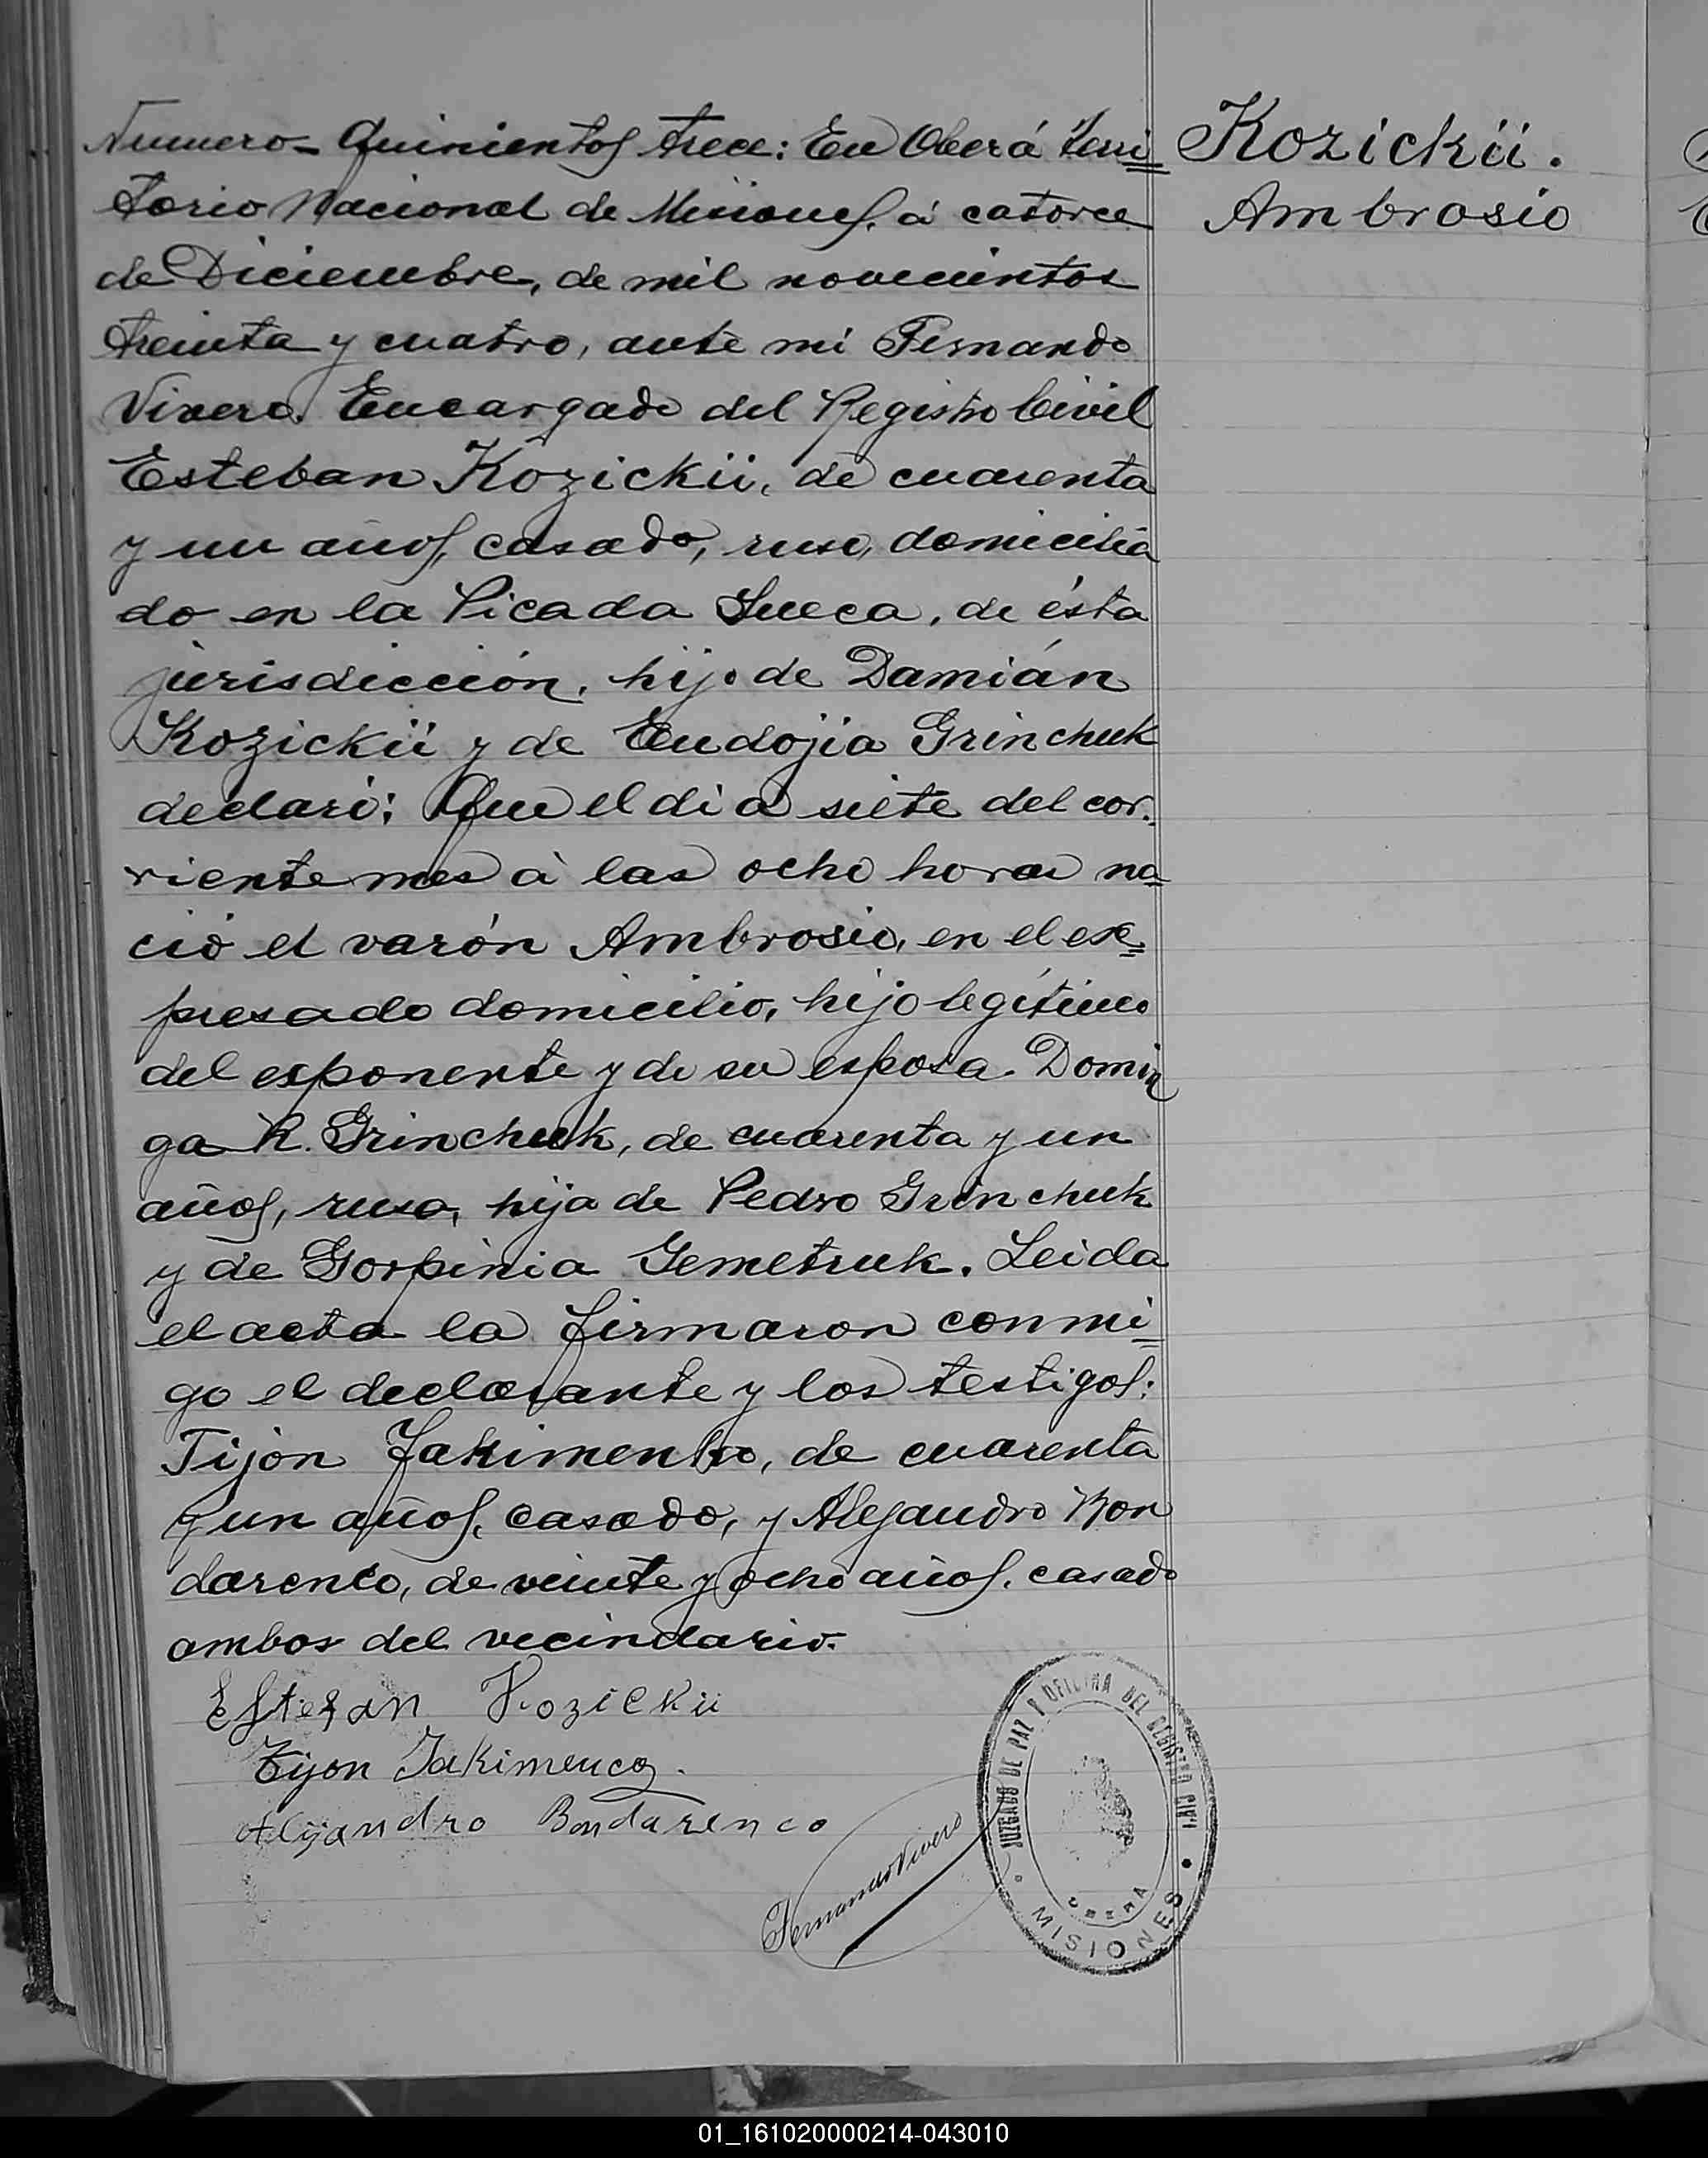 Numero - Quinientos trece: En Oberá Terri=
torio Nacional de Misiones, á catorce
de Diciembre, de mil novecientos
treinta y cuatro, ante mi Fernando
Vivero Encargado del Registro Civil
Esteban Kozickii, de cuarenta
y un años, casado, ruso, domicilia
do en la Picada Sueca, de ésta
jurisdicción, hijo de Damián
Kozickii y de Eudojia Grinchuk
declaró: Que el dia siete del cor-
riente mes á las ocho horas na
ció el varón Ambrosio, en el ex=
presado domicilio, hijo legítimo
del esponente y de su esposa Domin
ga K. Grinchuk, de cuarenta y un
años, rusa, hija de Pedro Grinchuk
y de Gorpinia Gemetruk. Leida
el acta la firmaron conmi=
go el declarante y los testigos:
Tijón Jakimenko, de cuarenta
y un años, casado, y Alejandro Bon
darenco, de veinte y ocho años, casado
ambos del vecindario.
Estefan Kozickii
Tijon Jakimenco
Alijandro Bondarenco
Fernando Vivero
JUZGADO DE PAZ Y OFICINA DEL REGISTRO CIVIL
OBERA
MISIONES
Kozickii.
Ambrosio
01_161020000214-043010